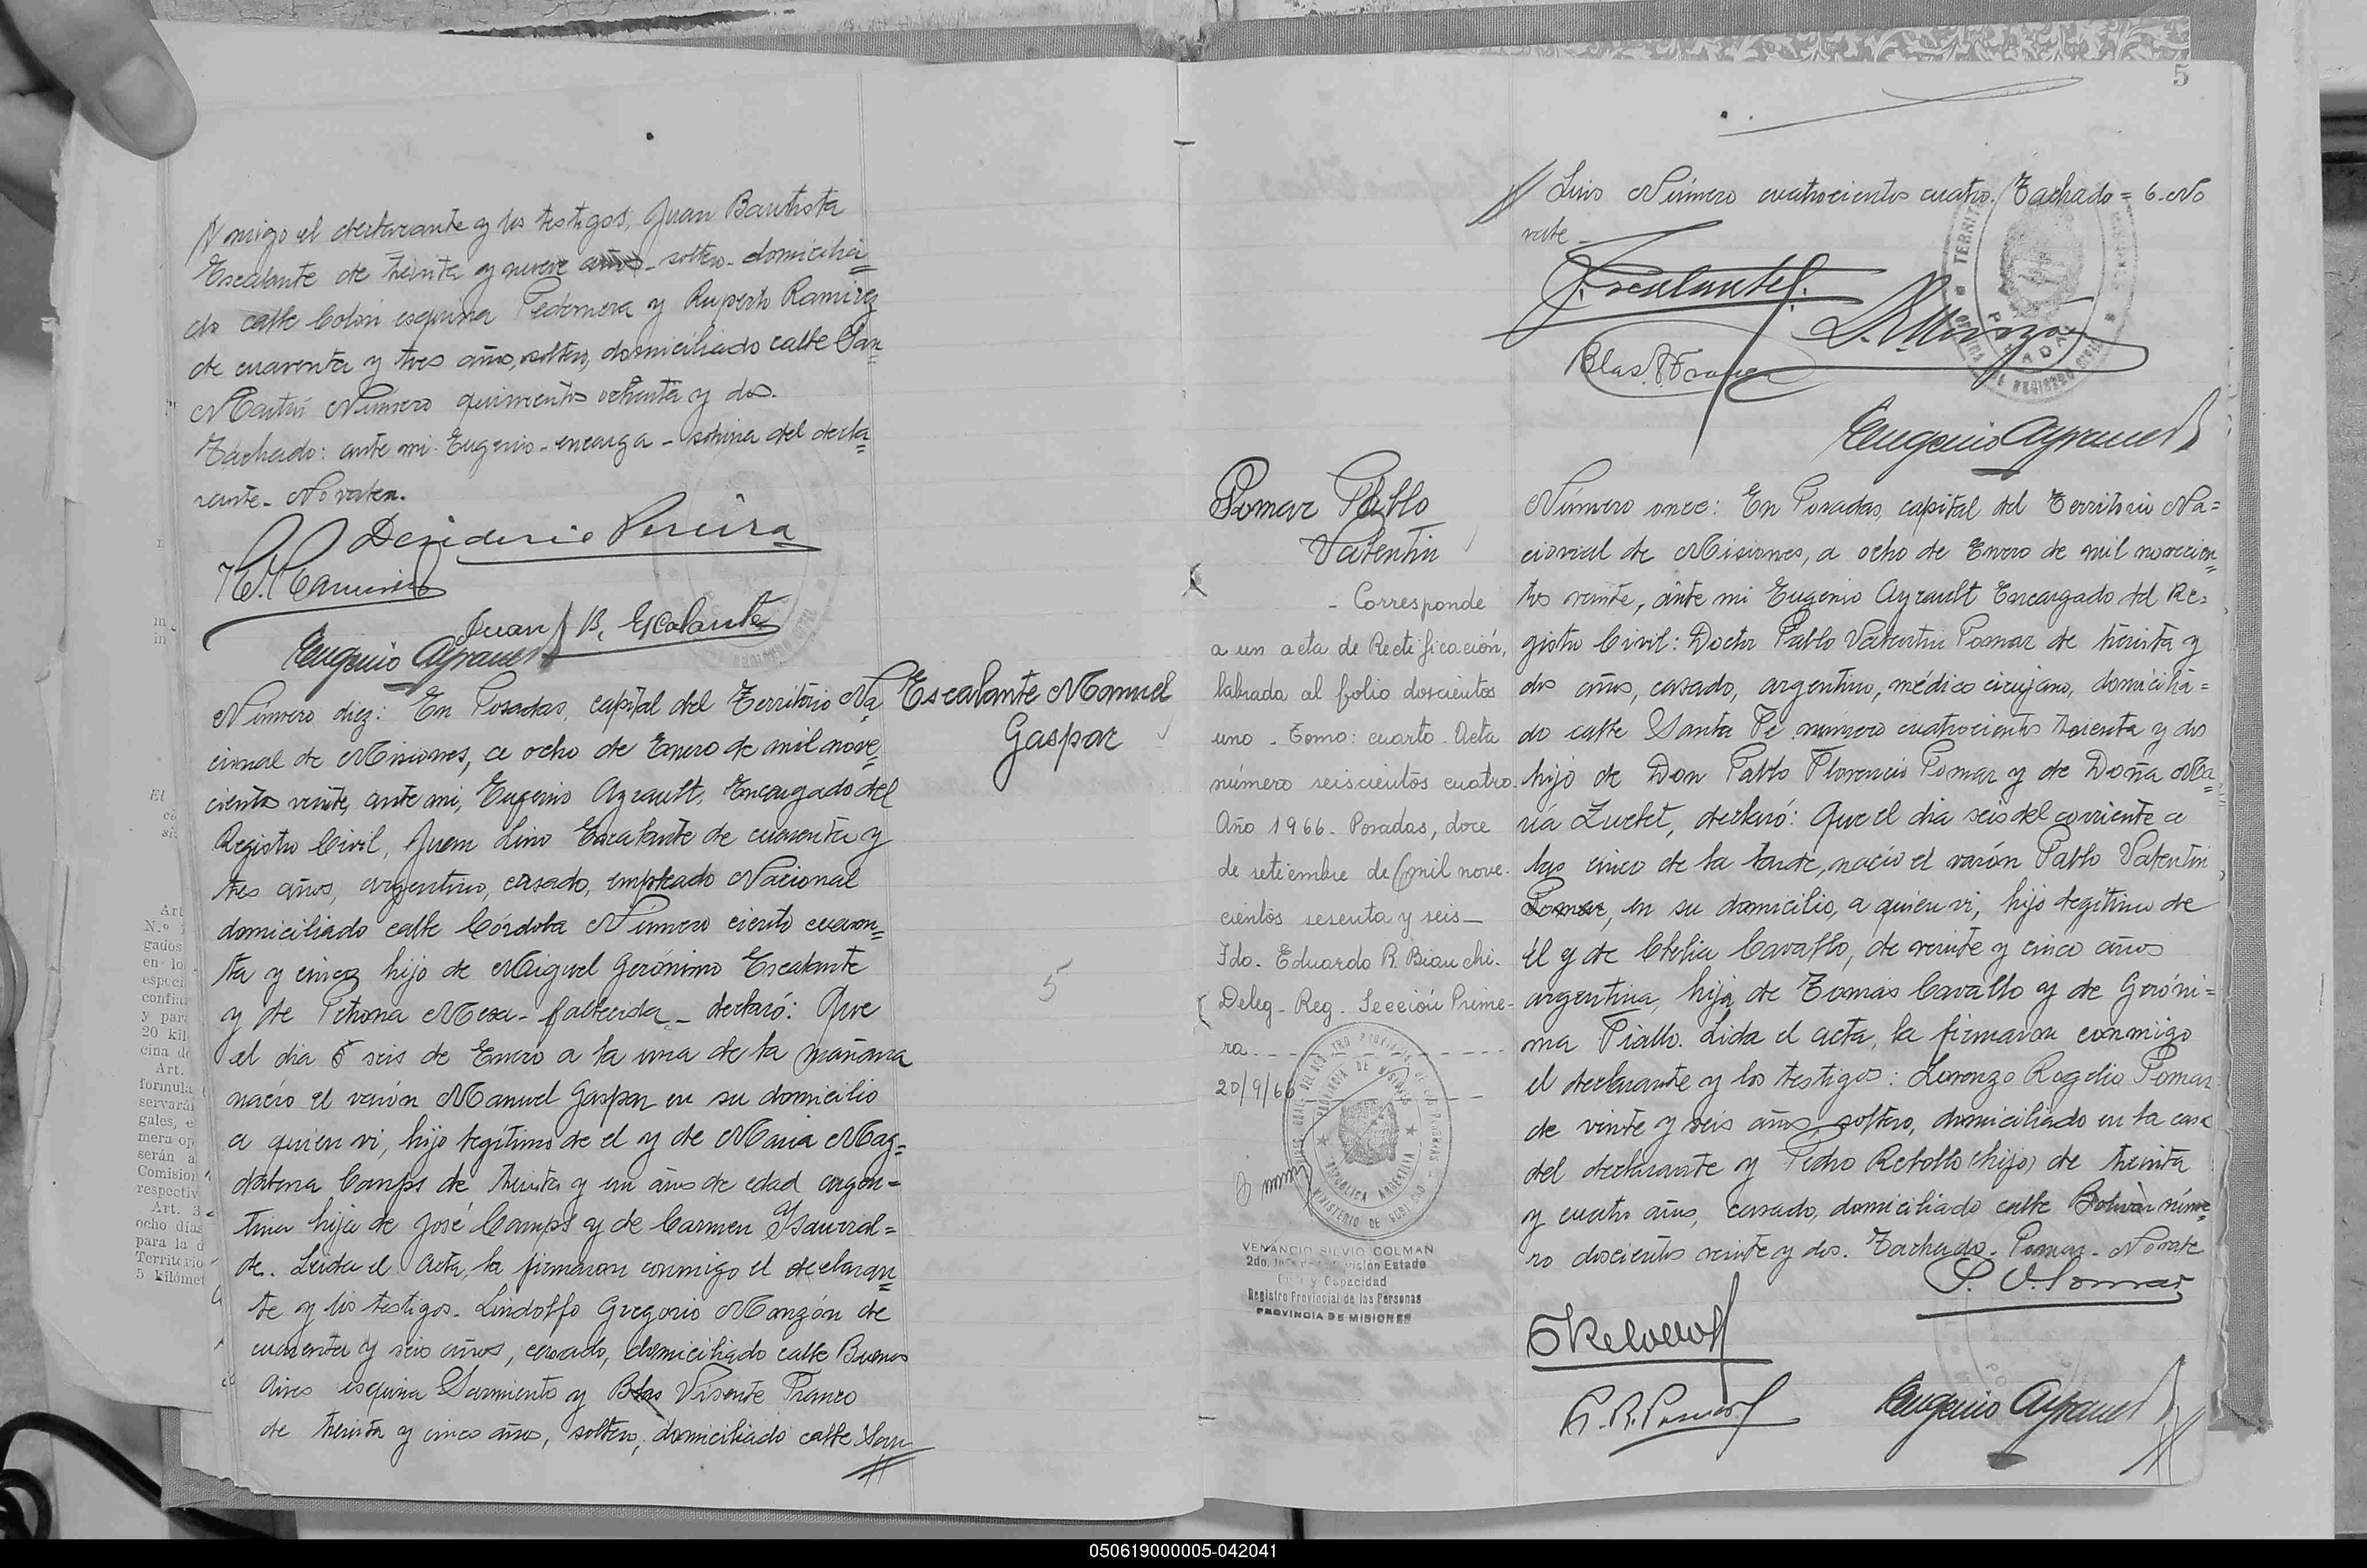 // migo el declarante y los testigos, Juan Bautista
Escalante de treinta y nueve años - soltero - domicilia=
do calle Colón esquina Pedernera y Ruperto Ramirez
de cuarenta y tres años, soltero, domiciliado calle San
Martín Número quinientos ochenta y dos.
Tachado: ante mi Eugenio - encarga - sobrina del decla=
rante - No valen.
Deziderio Pereira
Juan B. Escalante
Eugenio Ayrault
Número diez: En Posadas, capital del Territorio Na=
cional de Misiones, a ocho de Enero de mil nove=
cientos veinte, ante mi, Eugenio Ayrault, Encargado del
Registro Civil, Juan Lino Escalante de cuarenta y
tres años, argentino, casado, empleado Nacional
domiciliado calle Córdoba Número ciento cuaren=
ta y cinco hijo de Miguel Gerónimo Escalante
y de Petrona Meza - fallecida - declaró: Que
el dia 6 seis de Enero a la una de la mañana
nació el varón Manuel Gaspar en su domicilio
a quien vi, hijo legítimo de el y de Maria Mag=
dalena Camps de treinta y un años de edad argen=
tina hija de José Camps y de Carmen Ysaurral=
de. Leida el acta, la firmaron conmigo el declaran=
te y los testigos. Lindolfo Gregorio Monzón de
cuarenta y seis años, casado, domiciliado calle Buenos
Aires esquina Sarmiento y Blas Visente Franco
de treinta y cinco años, soltero, domiciliado calle San
//
Escalante Manuel
Gaspar
5
5
// Luis Número cuatrocientos cuatro. Tachado = 6 - No
vale -
J. Escalante
Blas V Franco
Eugenio Ayrault
Pomar Pablo
Valentin
- Corresponde
a un acta de Rectificación,
labrada al folio doscientos
uno - Tomo: cuarto - Acta
número seiscientos cuatro.
Año 1966 - Posadas, doce
de setiembre de mil nove-
cientos sesenta y seis -
Fdo. Eduardo R. Bianchi -
Deleg - Reg - Sección Prime-
ra - - -
20/9/66
PROVINCIA DE MISIONES
REPUBLICA ARGENTINA
VENANCIO SILVIO COLMAN
Civil y Capacidad
Registro Provincial de las Personas
PROVINCIA DE MISIONES
Número once: En Posadas, capital del Territorio Na=
cional de Misiones, a ocho de Enero de mil novecien=
tos veinte, ante mi Eugenio Ayrault Encargado del Re=
gistro Civil: Doctor Pablo Valentin Pomar de treinta y
dos años, casado, argentino, médico cirujano, domicilia=
do calle Santa Fé número cuatrocientos treinta y dos
hijo de Don Pablo Florencio Pomar y de Doña Ma=
ría Zuetet, declaró: Que el dia seis del corriente a
las cinco de la tarde, nació el varón Pablo Valentin
Pomar, en su domicilio, a quien vi, hijo legítimo de
él y de Clelia Cavallo, de veinte y cinco años
argentina, hija de Tomás Cavallo y de Geróni=
ma Piallo. Lida el acta, la firmaron conmigo
el declarante y los testigos: Lorenzo Rogelio Pomar
de vinte y seis años, soltero, domiciliado en la casa
del declarante y Pedro Rebollo (hijo) de treinta
y cuatro años, casado, domiciliado calle Bolivar núme=
ro doscientos veinte y dos. Tachado - Pomar - No vale
P. V. Pomar
Eugenio Ayrault
//
050619000005-042041